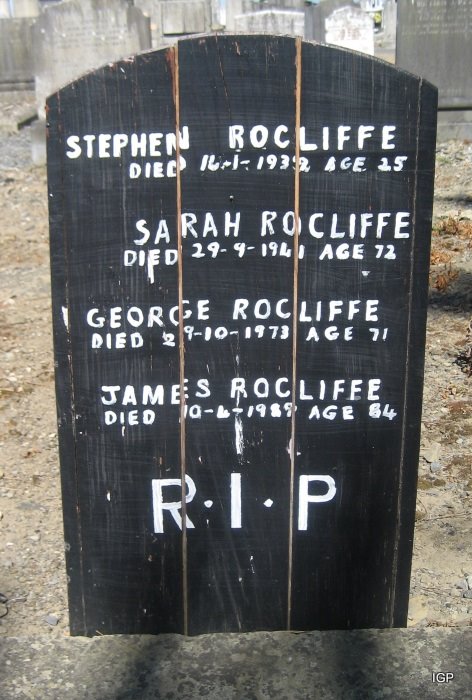 STEPHEN ROCLIFFE
DIED 14-1-1932 AGE 25
SARAH ROCLIFFE
DIED 29-9-1941 AGE 72
GEORGE ROCLIFFE
DIED 29-10-1973 AGE 71
JAMES ROCLIFFE
DIED 10-4-1989 AGE 84
R·I·P
IGP